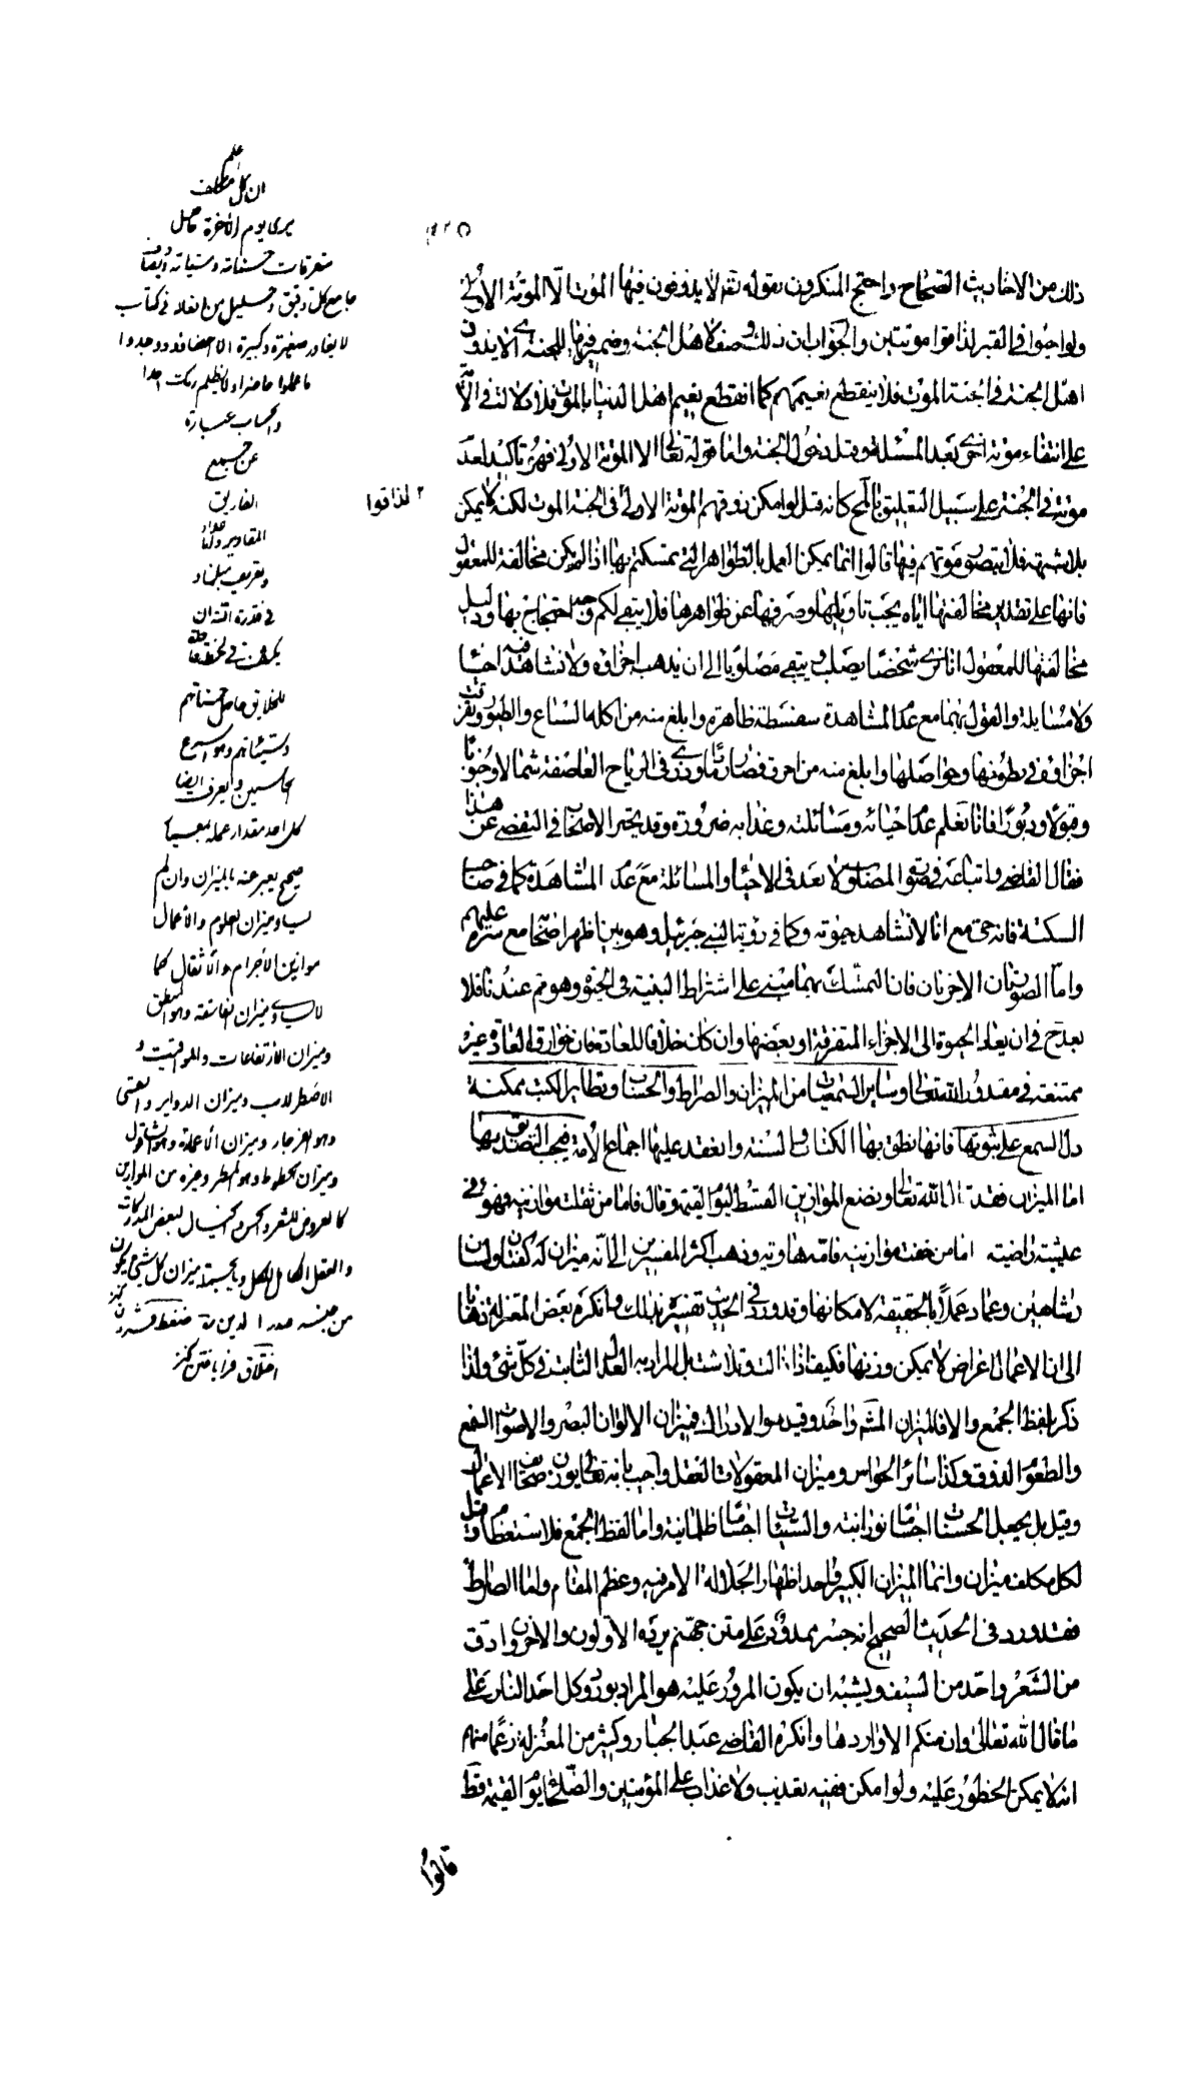 ذلك من الاحاديث الصحاح واحتج المنكرون بقوله تعالى لا يذوقون فيها الموت الا الموتة الاولى
ولو احيوا في القبر لذاقوا موتتين والجواب ان ذلك وصف لاهل الجنة وضمير فيها للجنة اى لا يذوق
اهل الجنة في الجنة الموت فلا ينقطع نعيمهم كما انقطع نعيم اهل الدنيا بالموت فلا دلالة في الاية
على انتفاء موتة اخرى بعد المسئلة وقبل دخول الجنة واما قوله تعالى الا الموتة الاولى فهو تاكيد لعدم
موتتهم في الجنة على سبيل التعليق بالمح كانه قيل لو امكن ذوقهم الموتة الاولى في الجنة الموت لكنه لا يمكن
بلا شبهة فلا يتصور موتهم فيها قالوا انما يمكن العمل بالظواهر التي تمسكتم بها اذا لم يكن مخالفة للمعقول
فانها على تقدير مخالفتها اياه يجب تاويلها وصرفها عن ظواهرها فلا يبقى لكم وجه احتجاج بها ودليل
مخالفتها للمعقول انا نرى شخصا يصلب ويبقى مصلوبا الى ان يذهب اجزاؤه ولا نشاهد فيه احياء
ولا مسايلة والقول بهما مع عدم المشاهدة سفسطة ظاهرة وابلغ منه من اكله السباع والطيور وتفرقت
اجزاؤه في بطونها وحواصلها وابلغ منه من احرق فصار رمادا وذرى في الرياح العاصفة شمالا وجنوبا
وقبولا ودبورا فانا نعلم عدم احيائه ومسائلته وعذابه ضرورة وقد تحير الاصحاب في التفصى عن هذا
فقال القاضى واتباعه في صورة المصلوب لا بعد في الاحياء والمسائلة مع عدم المشاهدة كما في صاحب
السكتة فانه حى مع انا لا نشاهد حيوته وكما في رؤية النبي جبرئيل وهو بين اظهر اصحابه مع ستره عليهم
واما الصورتان الاخريان فان التمسك بهما مبنى على اشتراط البنية في الحيوة وهو مم عندنا فلا
بعد ح في ان يعاد الحيوة الى الاجزاء المتفرقة او بعضها وان كان خلاف العادة فان خوارق العادة غير
ممتنعة في مقدور الله تعالى وسائر السمعيات من الميزان والصراط والحساب وتطاير الكتب ممكنة
دل السمع على ثبوتها فانها نطق بها الكتاب والسنة وانعقد عليها اجماع الامة فيجب التصديق بها
اما الميزان فقد قال الله تعالى ونضع الموازين القسط ليوم القيمة وقال فاما من ثقلت موازينه فهو في
عيشة راضية اما من خفت موازينه فامه هاوية وذهب اكثر المفسرين الى انه ميزان له كفتان ولسان
وشاهين وعماد عملا بالحقيقة لامكانها وقد ورد في الحديث تفسيره بذلك وانكره بعض المعتزلة ذهابا
الى ان الاعمال اعراض لا يمكن وزنها فكيف اذا زالت وتلاشت بل المراد به العدل الثابت في كل شئ ولذا
ذكر بلفظ الجمع والا فالميزان المشهور واحد وقيل هو الادراك فميزان الالوان البصر والاصوات السمع
والطعوم الذوق وكذا سائر الحواس وميزان المعقولات العقل واجيب بانه تعالى يوزن صحايف الاعمال
وقيل بل يجعل الحسنات اجساما نورانية والسيئات اجساما ظلمانية واما لفظ الجمع فللاستعظام وقيل
لكل مكلف ميزان وانما الميزان الكبير واحد اظهارا لجلالة الامر فيه وعظم المقام واما الصراط
فقد ورد في الحديث الصحيح انه جسر ممدود على متن جهنم يرده الاولون والاخرون ادق
من الشعر واحد من السيف ويشبه ان يكون المرور عليه هو المراد بورود كل احد النار على
ما قال الله تعالى وان منكم الا واردها وانكره القاضى عبد الجبار وكثير من المعتزلة زعما منهم
انه لا يمكن الخطور عليه ولو امكن ففيه تعذيب ولا عذاب على المؤمنين والصلحاء يوم القيمة قط
قالوا
لذاقوا
علم
ان كل مكلف
يرى يوم الآخرة حاصل
متفرقات حسناته وسيئاته
جامع كل دقيق وجليل من افعاله في كتاب
لا يغادر صغيرة وكبيرة الا احصاها ووجدوا
ما عملوا حاضرا ولا يظلم ربك احدا
والحساب عبارة
عن جميع
المقادير
وتعريف مبلغها
في قدرة الله ان
يكشف في لحظة
للخلايق حاصل حسناتهم
وسيئاتهم وهو اسرع
الحاسبين ويعرف ايضا
كل احد مقدار عمله بمعيار
صحيح يعبر عنه بالميزان وان لم
يساو ميزان العلوم والأعمال
موازين الأجرام والأثقال كما
لا يساوى ميزان الفلسفة وهو المنطق
وميزان الارتفاعات والمواقيت و
الاصطرلاب وميزان الدواير والقسى
وهو الفرجار وميزان الأعمدة وهو الشاقول
وميزان الخطوط وهو المسطر وغيره من الموازين
كالعروض للشعر والحس والخيال لبعض المدركات
والعقل الكامل للكل وبالجملة ميزان كل شئ يكون
من جنسه صدر الدين